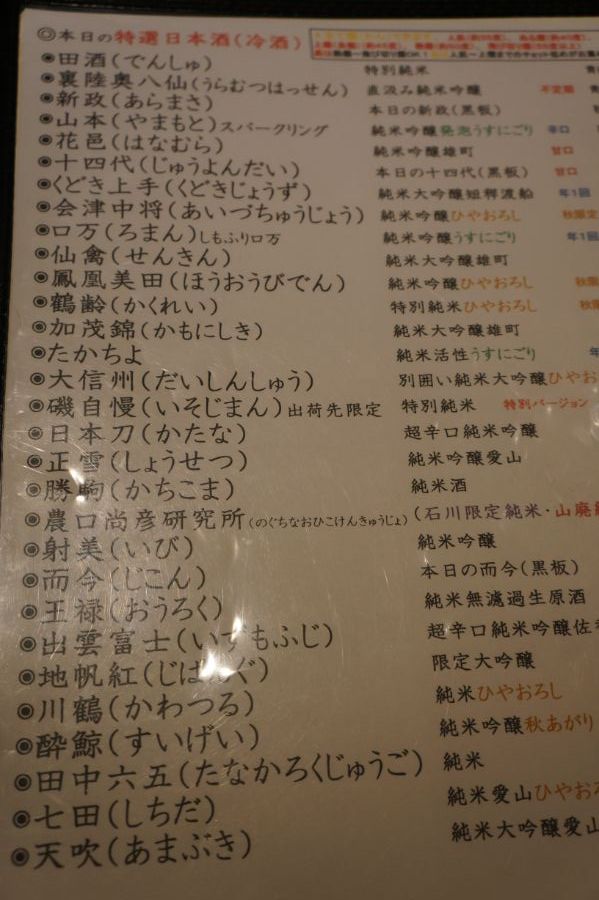 ◎本日の特選日本酒(冷酒)
◉田酒(でんしゅ) 特別純米
◉裏陸奥八仙(うらむつはっせん) 直汲み純米吟醸 不定期
◉新政(あらまさ) 本日の新政(黒板)
◉山本(やまもと)スパークリング 純米吟醸発泡うすにごり 辛口
◉花邑(はなむら) 純米吟醸雄町 甘口
◉十四代(じゅうよんだい) 本日の十四代(黒板) 甘口
◉くどき上手(くどきじょうず) 純米大吟醸短稈渡船 年1回
◉会津中将(あいづちゅうじょう) 純米吟醸ひやおろし 秋限定
◉ロ万(ろまん)しもふりロ万 純米吟醸うすにごり 年1回
◉仙禽(せんきん) 純米大吟醸雄町
◉鳳凰美田(ほうおうびでん) 純米吟醸ひやおろし 秋限
◉鶴齢(かくれい) 特別純米ひやおろし 秋限
◉加茂錦(かもにしき) 純米大吟醸雄町
◉たかちよ 純米活性うすにごり 年
◉大信州(だいしんしゅう) 別囲い純米大吟醸ひやお
◉磯自慢(いそじまん)出荷先限定 特別純米 特別バージョン
◉日本刀(かたな) 超辛口純米吟醸
◉正雪(しょうせつ) 純米吟醸愛山
◉勝駒(かちこま) 純米酒
◉農口尚彦研究所(のぐちなおひこけんきゅうじょ) (石川限定純米・山廃
◉射美(いび) 純米吟醸
◉而今(じこん) 本日の而今(黒板)
◉王禄(おうろく) 純米無濾過生原酒
◉出雲富士(いずもふじ) 超辛口純米吟醸佐
◉地帆紅(じはんぐ) 限定大吟醸
◉川鶴(かわつる) 純米ひやおろし
◉酔鯨(すいげい) 純米吟醸秋あがり
◉田中六五(たなかろくじゅうご) 純米
◉七田(しちだ) 純米愛山ひやお
◉天吹(あまぶき) 純米大吟醸愛山